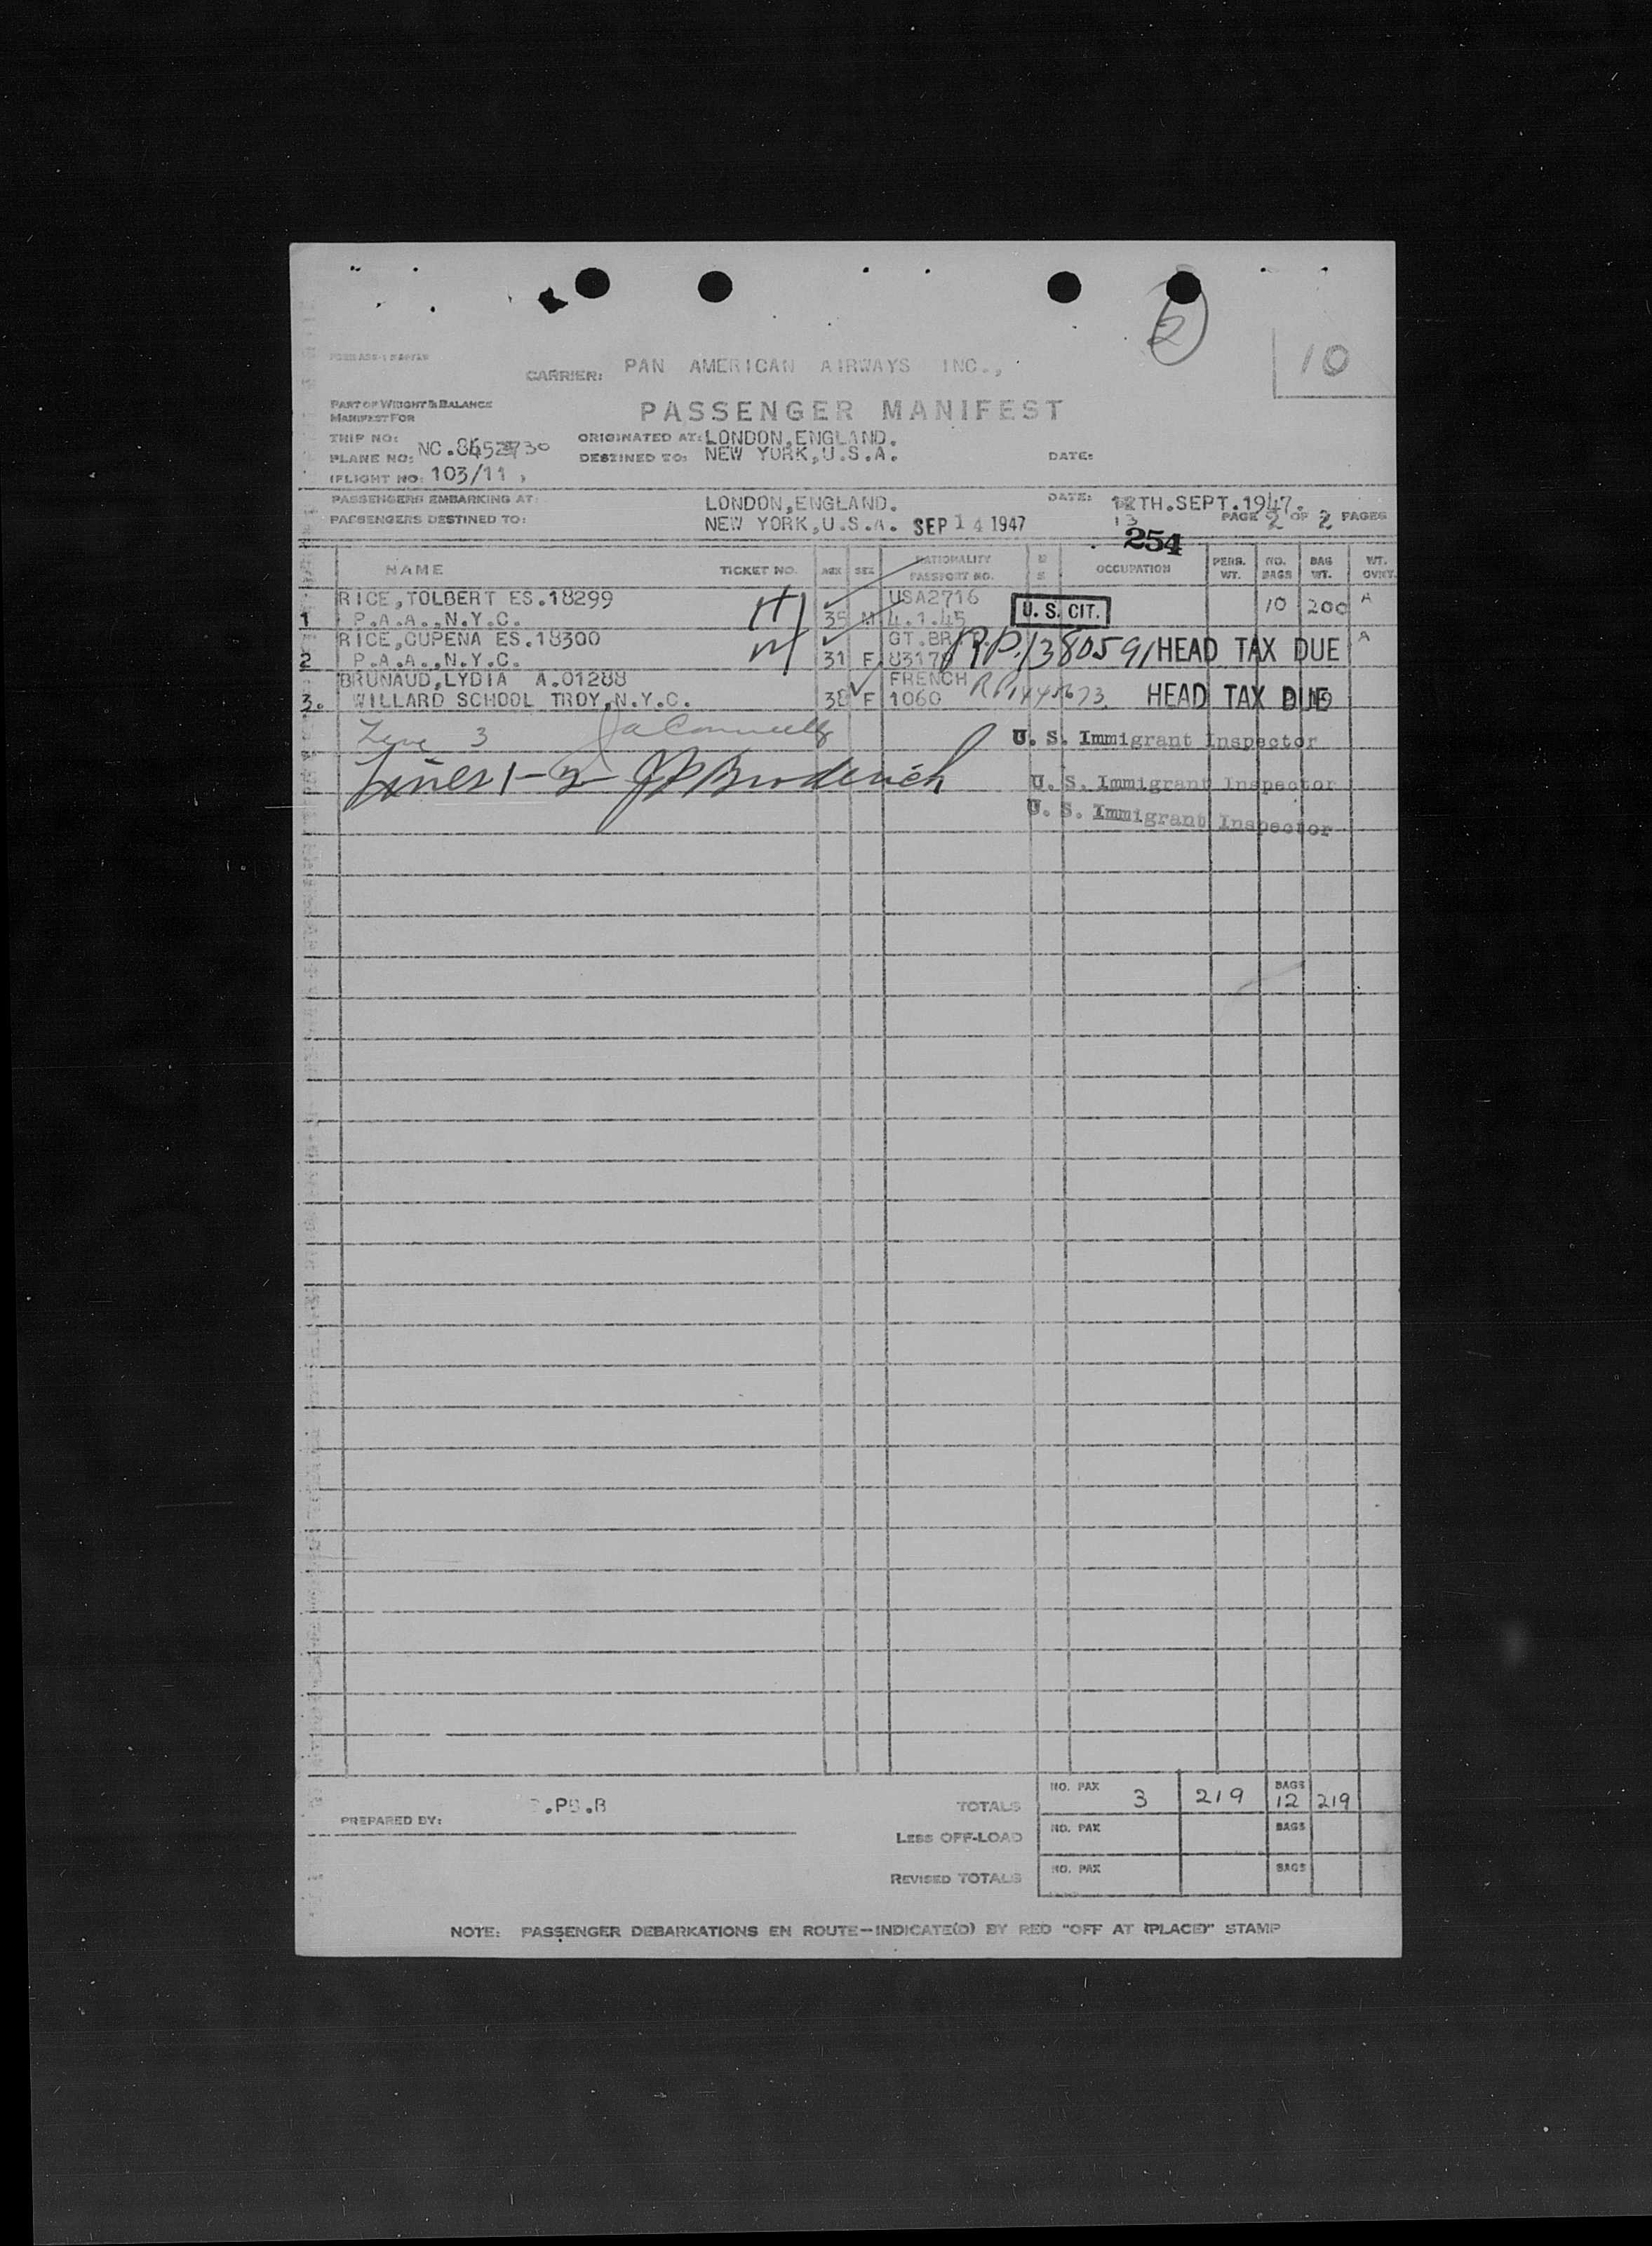 2
10
CARRIER: PAN AMERICAN AIRWAYS INC.,
PART OF WEIGHT & BALANCE
MANIFEST FOR
PASSENGER MANIFEST
TRIP NO:
ORIGINATED AT: LONDON,ENGLAND.
PLANE NO: NC.
DESTINED TO: NEW YORK,U.S.A.
DATE:
(FLIGHT NO: 103/11 )
PASSENGERS EMBARKING AT: LONDON,ENGLAND. DATE: TH.SEPT.1947.
13
PASSENGERS DESTINED TO: NEW YORK,U.S.A. SEP 14 1947 PAGE 2 OF 2 PAGES
254
NAME TICKET NO. AGE SEX NATIONALITY PASSPORT NO. OCCUPATION PERS. WT. NO. BAGS BAG WT. WT. OVWT.
RICE,TOLBERT ES.18299 USA2716
1 P.A.A.,N.Y.C. 35 M 4.1.45 U. S. CIT. 10 200 A
RICE,CUPENA ES.18300 GT.BR
2 P.A.A.,N.Y.C. 31 F R.P. 1380591 HEAD TAX DUE A
BRUNAUD,LYDIA A.01288 FRENCH
3. WILLARD SCHOOL TROY,N.Y.C. 38 F 1060 R.P. HEAD TAX DUE
Line 3 U. S. Immigrant Inspector
Lines 1-2 JP Broderick U. S. Immigrant Inspector
U. S. Immigrant Inspector
PREPARED BY: .B
TOTALS NO. PAX 3 219 BAGS 12 219
LESS OFF-LOAD NO. PAX BAGS
REVISED TOTALS NO. PAX BAGS
NOTE: PASSENGER DEBARKATIONS EN ROUTE—INDICATE(D) BY RED "OFF AT (PLACE)" STAMP